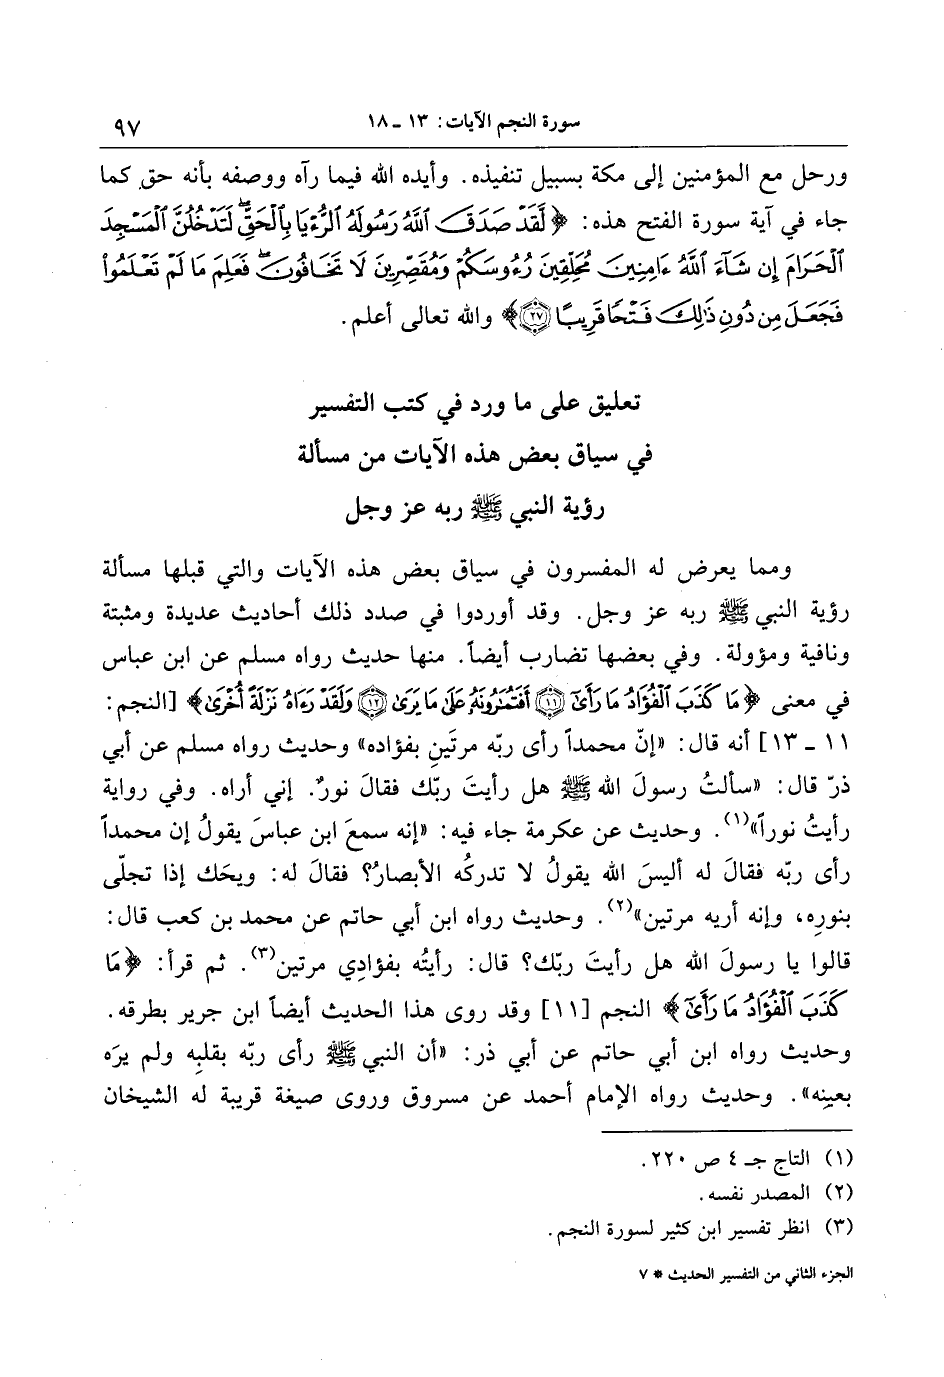 سورة النجم الآيات: ١٣ ـ ١٨
٩٧
ورحل مع المؤمنين إلى مكة بسبيل تنفيذه. وأيده الله فيما رآه ووصفه بأنه حق كما
جاء في آية سورة الفتح هذه: ﴿لَّقَدْ صَدَقَ ٱللَّهُ رَسُولَهُ ٱلرُّءْيَا بِٱلْحَقِّ ۖ لَتَدْخُلُنَّ ٱلْمَسْجِدَ
ٱلْحَرَامَ إِن شَآءَ ٱللَّهُ ءَامِنِينَ مُحَلِّقِينَ رُءُوسَكُمْ وَمُقَصِّرِينَ لَا تَخَافُونَ ۖ فَعَلِمَ مَا لَمْ تَعْلَمُوا۟
فَجَعَلَ مِن دُونِ ذَٰلِكَ فَتْحًا قَرِيبًا ۝٢٧﴾ والله تعالى أعلم.
تعليق على ما ورد في كتب التفسير
في سياق بعض هذه الآيات من مسألة
رؤية النبي ﷺ ربه عز وجل
ومما يعرض له المفسرون في سياق بعض هذه الآيات والتي قبلها مسألة
رؤية النبي ﷺ ربه عز وجل. وقد أوردوا في صدد ذلك أحاديث عديدة ومثبتة
ونافية ومؤولة. وفي بعضها تضارب أيضاً. منها حديث رواه مسلم عن ابن عباس
في معنى ﴿مَا كَذَبَ ٱلْفُؤَادُ مَا رَأَىٰٓ ۝١١ أَفَتُمَٰرُونَهُۥ عَلَىٰ مَا يَرَىٰ ۝١٢ وَلَقَدْ رَءَاهُ نَزْلَةً أُخْرَىٰ﴾ [النجم:
١١ ـ ١٣] أنه قال: «إنّ محمداً رأى ربّه مرتَينِ بفؤاده» وحديث رواه مسلم عن أبي
ذرّ قال: «سألتُ رسولَ الله ﷺ هل رأيتَ ربّك فقالَ نورٌ. إني أراه. وفي رواية
رأيتُ نوراً»(١). وحديث عن عكرمة جاء فيه: «إنه سمعَ ابن عباسَ يقولُ إن محمداً
رأى ربّه فقالَ له أليسَ الله يقولُ لا تدركُه الأبصارُ؟ فقالَ له: ويحَك إذا تجلّى
بنورِه، وإنه أريه مرتين»(٢). وحديث رواه ابن أبي حاتم عن محمد بن كعب قال:
قالوا يا رسولَ الله هل رأيتَ ربّك؟ قال: رأيتُه بفؤادِي مرتين(٣). ثم قرأ: ﴿مَا
كَذَبَ ٱلْفُؤَادُ مَا رَأَىٰٓ﴾ النجم [١١] وقد روى هذا الحديث أيضاً ابن جرير بطرقه.
وحديث رواه ابن أبي حاتم عن أبي ذر: «أن النبي ﷺ رأى ربّه بقلبِه ولم يرَه
بعينِه». وحديث رواه الإمام أحمد عن مسروق وروى صيغة قريبة له الشيخان
(١) التاج جـ ٤ ص ٢٢٠.
(٢) المصدر نفسه.
(٣) انظر تفسير ابن كثير لسورة النجم.
الجزء الثاني من التفسير الحديث * ٧